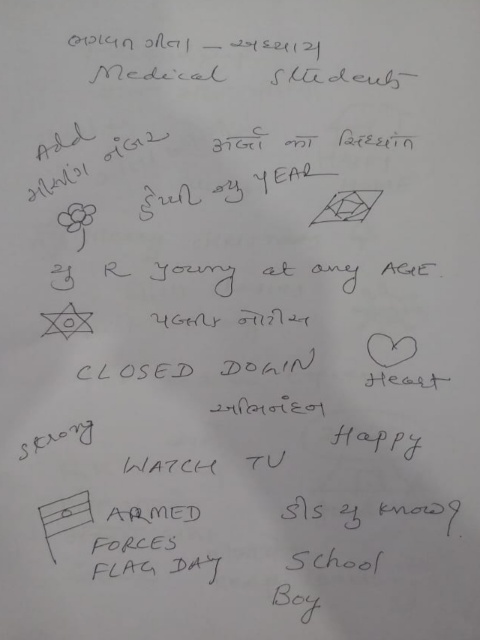 ભગવત ગીતા - અધ્યાય
Medical Students
Add
મોબાઇલ નંબર
अर्जा का सिध्धांत
હેપી ન્યુ YEAR
યુ R young at any AGE.
પબ્લીક નોટીસ
CLOSED DOWN
Heart
અભિનંદન
strong
Happy
WATCH TV
ARMED
FORCES
FLAG DAY
ડીડ યુ know?
School
Boy